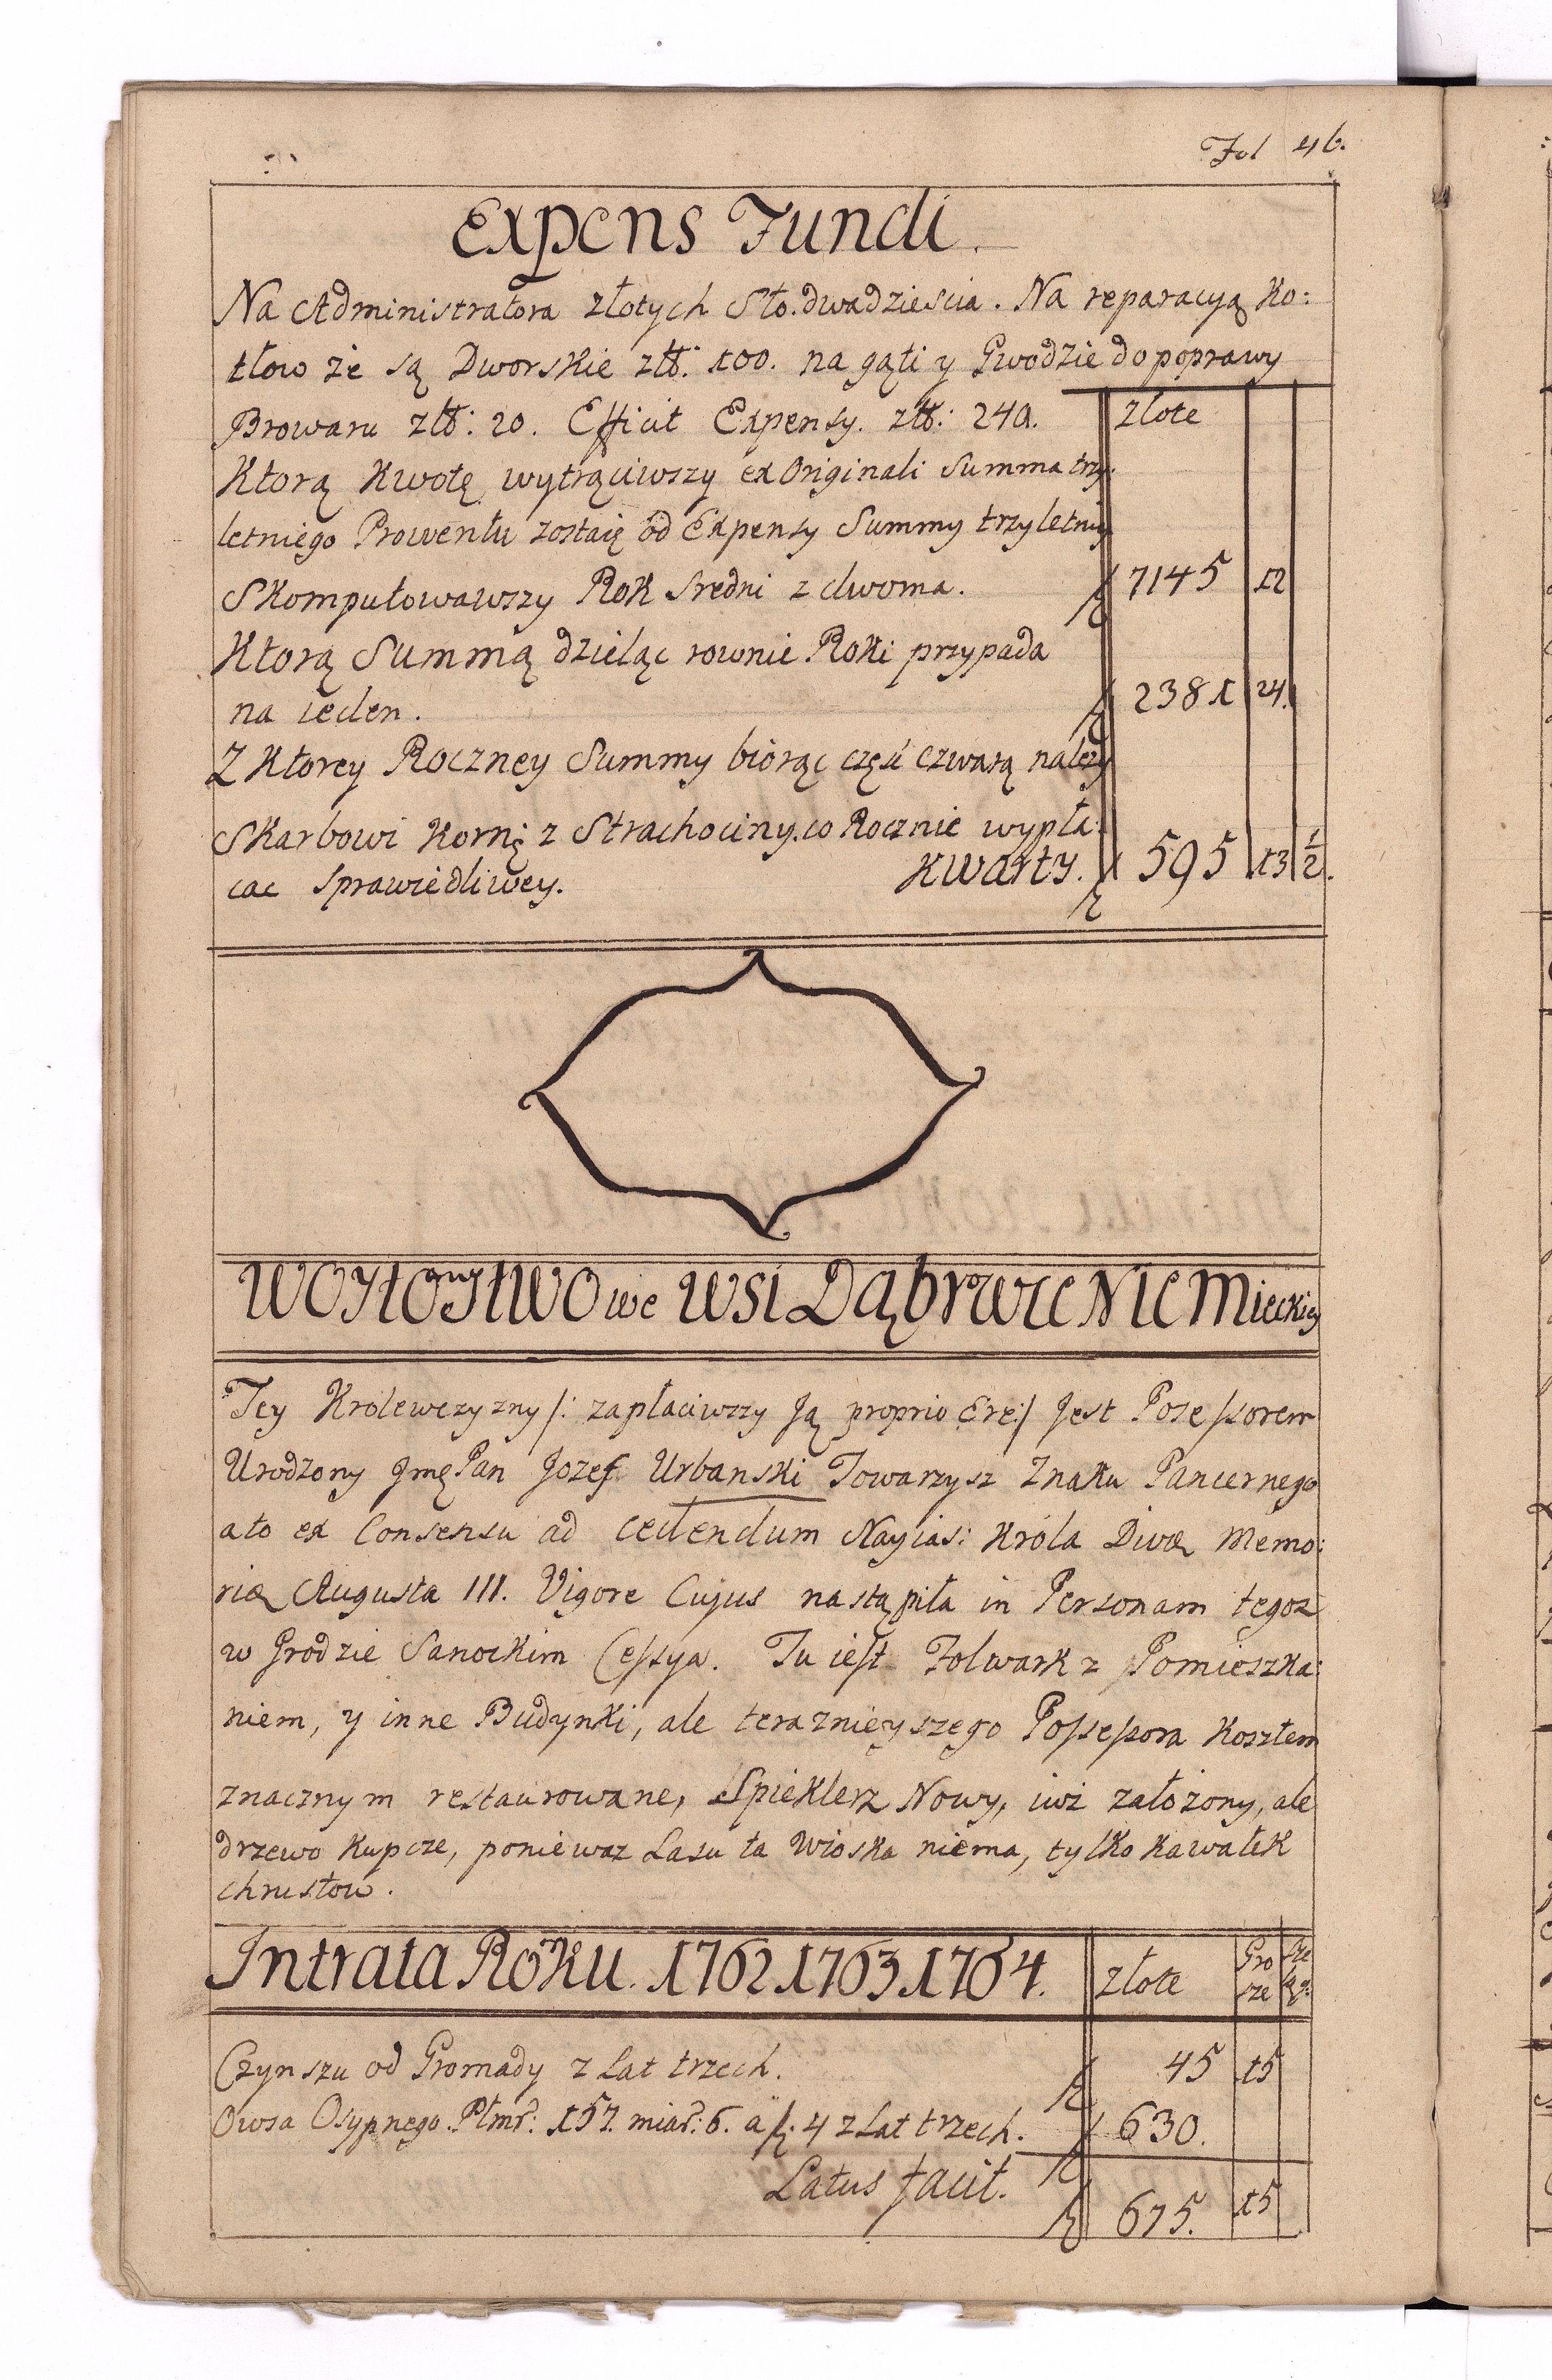 Fol 46.
Expens Fundi.
Na Administratora złotych Sto. dwadzieścia. Na reparacyą Ko:
tłow że są Dworskie złt: 100. na gąti y Gwodzie do poprawy
Browaru złt: 20. Efficit Expensy. złt: 240. złote
Ktorą Kwotę wytrąciwszy ex Originali Summa trzy
letniego Prowentu zostaię od Expensy Summy trzyletniy
Skomputowawszy Rok sredni z dwoma. 7145 12
Ktorą Summą dzieląc rownie Roki przypada
na ieden. 2381 24.
Z Ktorey Roczney Summy biorąc część czwartą należy
Skarbowi Kornę z Strachociny co Rocznie wypła:
cac sprawiedliwey. Kwarty. 595 13 1/2.
WOYtOstWO we WSi DĄbrowie NieMieckiey
Tey Krolewczyzny /: zapłaciwszy Ją proprio Ere :/ Jest Posessorem
Urodzony Jmę Pan Jozef Urbanski Towarzysz Znaku Pancernego
ato ex Consensu ad cedendum Nayias: Króla Divæ Memo:
riæ Augusta III. Vigore Cujus nastąpiła in Personam tegoz
w Grodzie Sanockim Cessya. Tu iest Folwark z Pomieszka:
niem, y inne Budynki, ale teraznieyszego Possessora Kosztem
znacznym restaurowane, Spieklerz Nowy, iuż założony, ale
drzewo Kupcze, poniewaz Lasu ta Wioska niema, tylko kawałek
chrustow.
Intrata Roku. 1762 1763 1764. złote Gro sze
Czynszu od Gromady z Lat trzech. 45 15
Owsa Osypnego. Płmr: 157. miar: 6. a f. 4 z Lat trzech. 630.
Latus facit. 675. 15